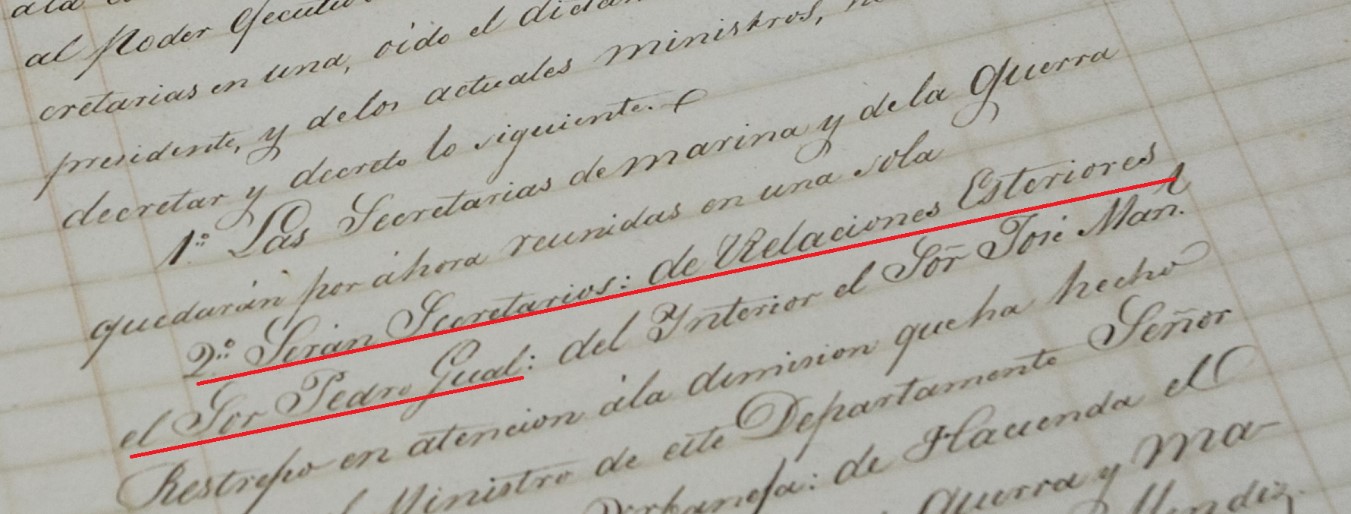 al Poder Ejecutivo
cretarias en una, oido el
presidente, y delos actuales ministros,
decretar y decreto lo siguiente.
1º Las Secretarias de marina y dela Guerra
quedarán por ahora reunidas en una sola
2º Serán Secretarios: de Relaciones Esteriores
el Sor Pedro Gual: del Interior el Sor José Man.l
Restrepo en atencion ála dimision queha hecho
Ministro de este Departamento Señor
de Hacienda el
Guerra y Ma-
Mendez.